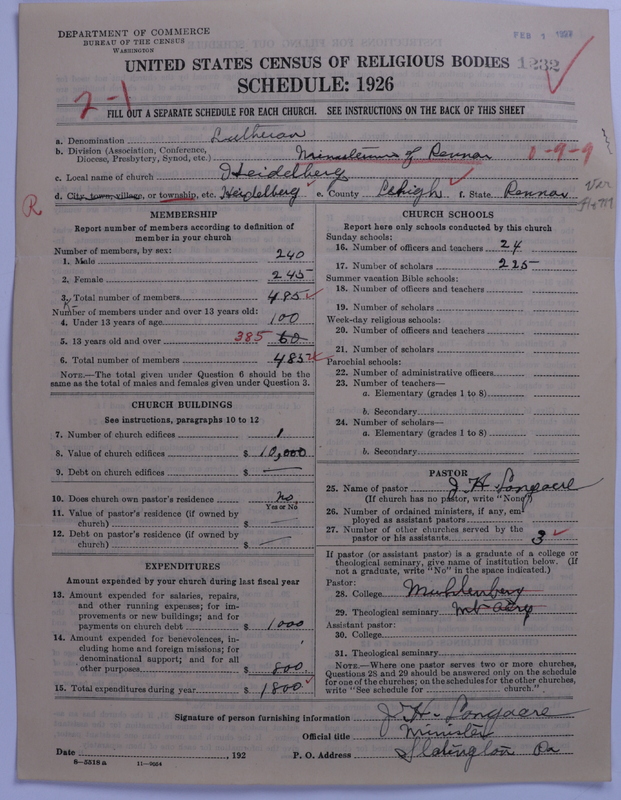 DEPARTMENT OF COMMERCE
BUREAU OF THE CENSUS
WASHINGTON
FEB 1 1927
UNITED STATES CENSUS OF RELIGIOUS BODIES 1232
SCHEDULE: 1926
2-1
FILL OUT A SEPARATE SCHEDULE FOR EACH CHURCH. SEE INSTRUCTIONS ON THE BACK OF THIS SHEET
a. Denomination Lutheran
b. Division (Association, Conference, Diocese, Presbytery, Synod, etc.) Ministerium of Penna 0-9-9
c. Local name of church Heidelberg
d. City, town, village, or township, etc. Heidelberg e. County Lehigh f. State Penna
R
MEMBERSHIP
Report number of members according to definition of
member in your church
Number of members, by sex:
1. Male 240
2. Female 245
3. Total number of members 485
Number of members under and over 13 years old:
4. Under 13 years of age 100
5. 13 years old and over 385 60
6. Total number of members 485
NOTE.—The total given under Question 6 should be the
same as the total of males and females given under Question 3.
CHURCH BUILDINGS
See instructions, paragraphs 10 to 12
7. Number of church edifices 1
8. Value of church edifices $ 10,000
9. Debt on church edifices $ —
10. Does church own pastor's residence no
Yes or No
11. Value of pastor's residence (if owned by
church) $ —
12. Debt on pastor's residence (if owned by
church) $ —
EXPENDITURES
Amount expended by your church during last fiscal year
13. Amount expended for salaries, repairs,
and other running expenses; for im-
provements or new buildings; and for
payments on church debt $ 1000
14. Amount expended for benevolences, in-
cluding home and foreign missions; for
denominational support; and for all
other purposes $ 800
15. Total expenditures during year $ 1800
CHURCH SCHOOLS
Report here only schools conducted by this church
Sunday schools:
16. Number of officers and teachers 24
17. Number of scholars 225
Summer vacation Bible schools:
18. Number of officers and teachers
19. Number of scholars
Week-day religious schools:
20. Number of officers and teachers
21. Number of scholars
Parochial schools:
22. Number of administrative officers
23. Number of teachers—
a. Elementary (grades 1 to 8)
b. Secondary
24. Number of scholars—
a. Elementary (grades 1 to 8)
b. Secondary
PASTOR
25. Name of pastor J. H. Longacre
(If church has no pastor, write "None")
26. Number of ordained ministers, if any, em-
ployed as assistant pastors
27. Number of other churches served by the
pastor or his assistants 3
If pastor (or assistant pastor) is a graduate of a college or
theological seminary, give name of institution below. (If
not a graduate, write "No" in the space indicated.)
Pastor:
28. College Muhlenberg
29. Theological seminary Mt Airy
Assistant pastor:
30. College
31. Theological seminary
NOTE.—Where one pastor serves two or more churches,
Questions 28 and 29 should be answered only on the schedule
for one of the churches; on the schedules for the other churches,
write "See schedule for church."
Signature of person furnishing information J. H. Longacre
Official title Minister
Date , 192 P. O. Address Slatington Pa
8—5518 a 11—9054